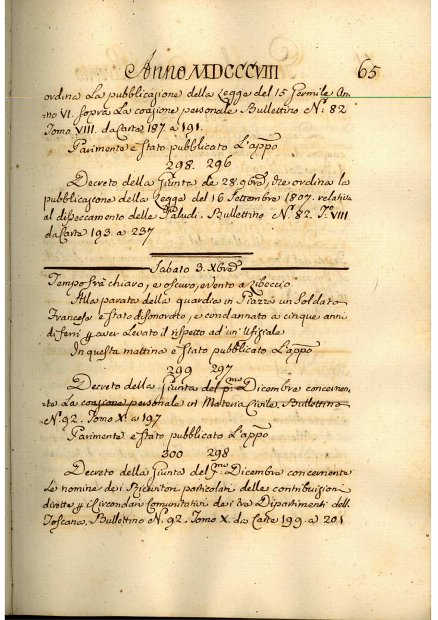 Anno MDCCCVIII 65
ordina La pubblicazione della Legge del 15 Germile An-
no VI. sopra La coazione personale. Bullettino N.° 82
Tomo VIII. da Carte 187 a 191.
Parimente è stato pubblicato L'appo
298. 296
Decreto della Giunta de 28. 9bre, che ordina la
pubblicazione della Legge del 16 Settembre 1807. relativa
al disseccamento delle Paludi. Bullettino N.° 82. T.° VIII
da Carte 193. a 237
Sabato 3. Xbre
Tempo frà chiaro, e oscuro, e vento a libeccio
Alla parata della guardia in Piazza un Soldato
Francese è stato disonorato, e condannato a cinque anni
di ferri p aver Levato il rispetto ad un' Ufiziale
In questa mattina è stato pubblicato L'appo
299 297
Decreto della Giunta del p:mo Dicembre concernen-
te La coazione personale in Materia Civile. Bullettino
N.° 92. Tomo X. a 197
Parimente è stato pubblicato L'appo
300 298
Decreto della Giunta del p:mo Dicembre concernente
Le nomine dei Ricevitori particolari delle contribuzioni
dirette p i Circondari Comunitativi dei tre Dipartimenti dell.
Toscana. Bullettino N. 92. Tomo X. da Carte 199. a 201